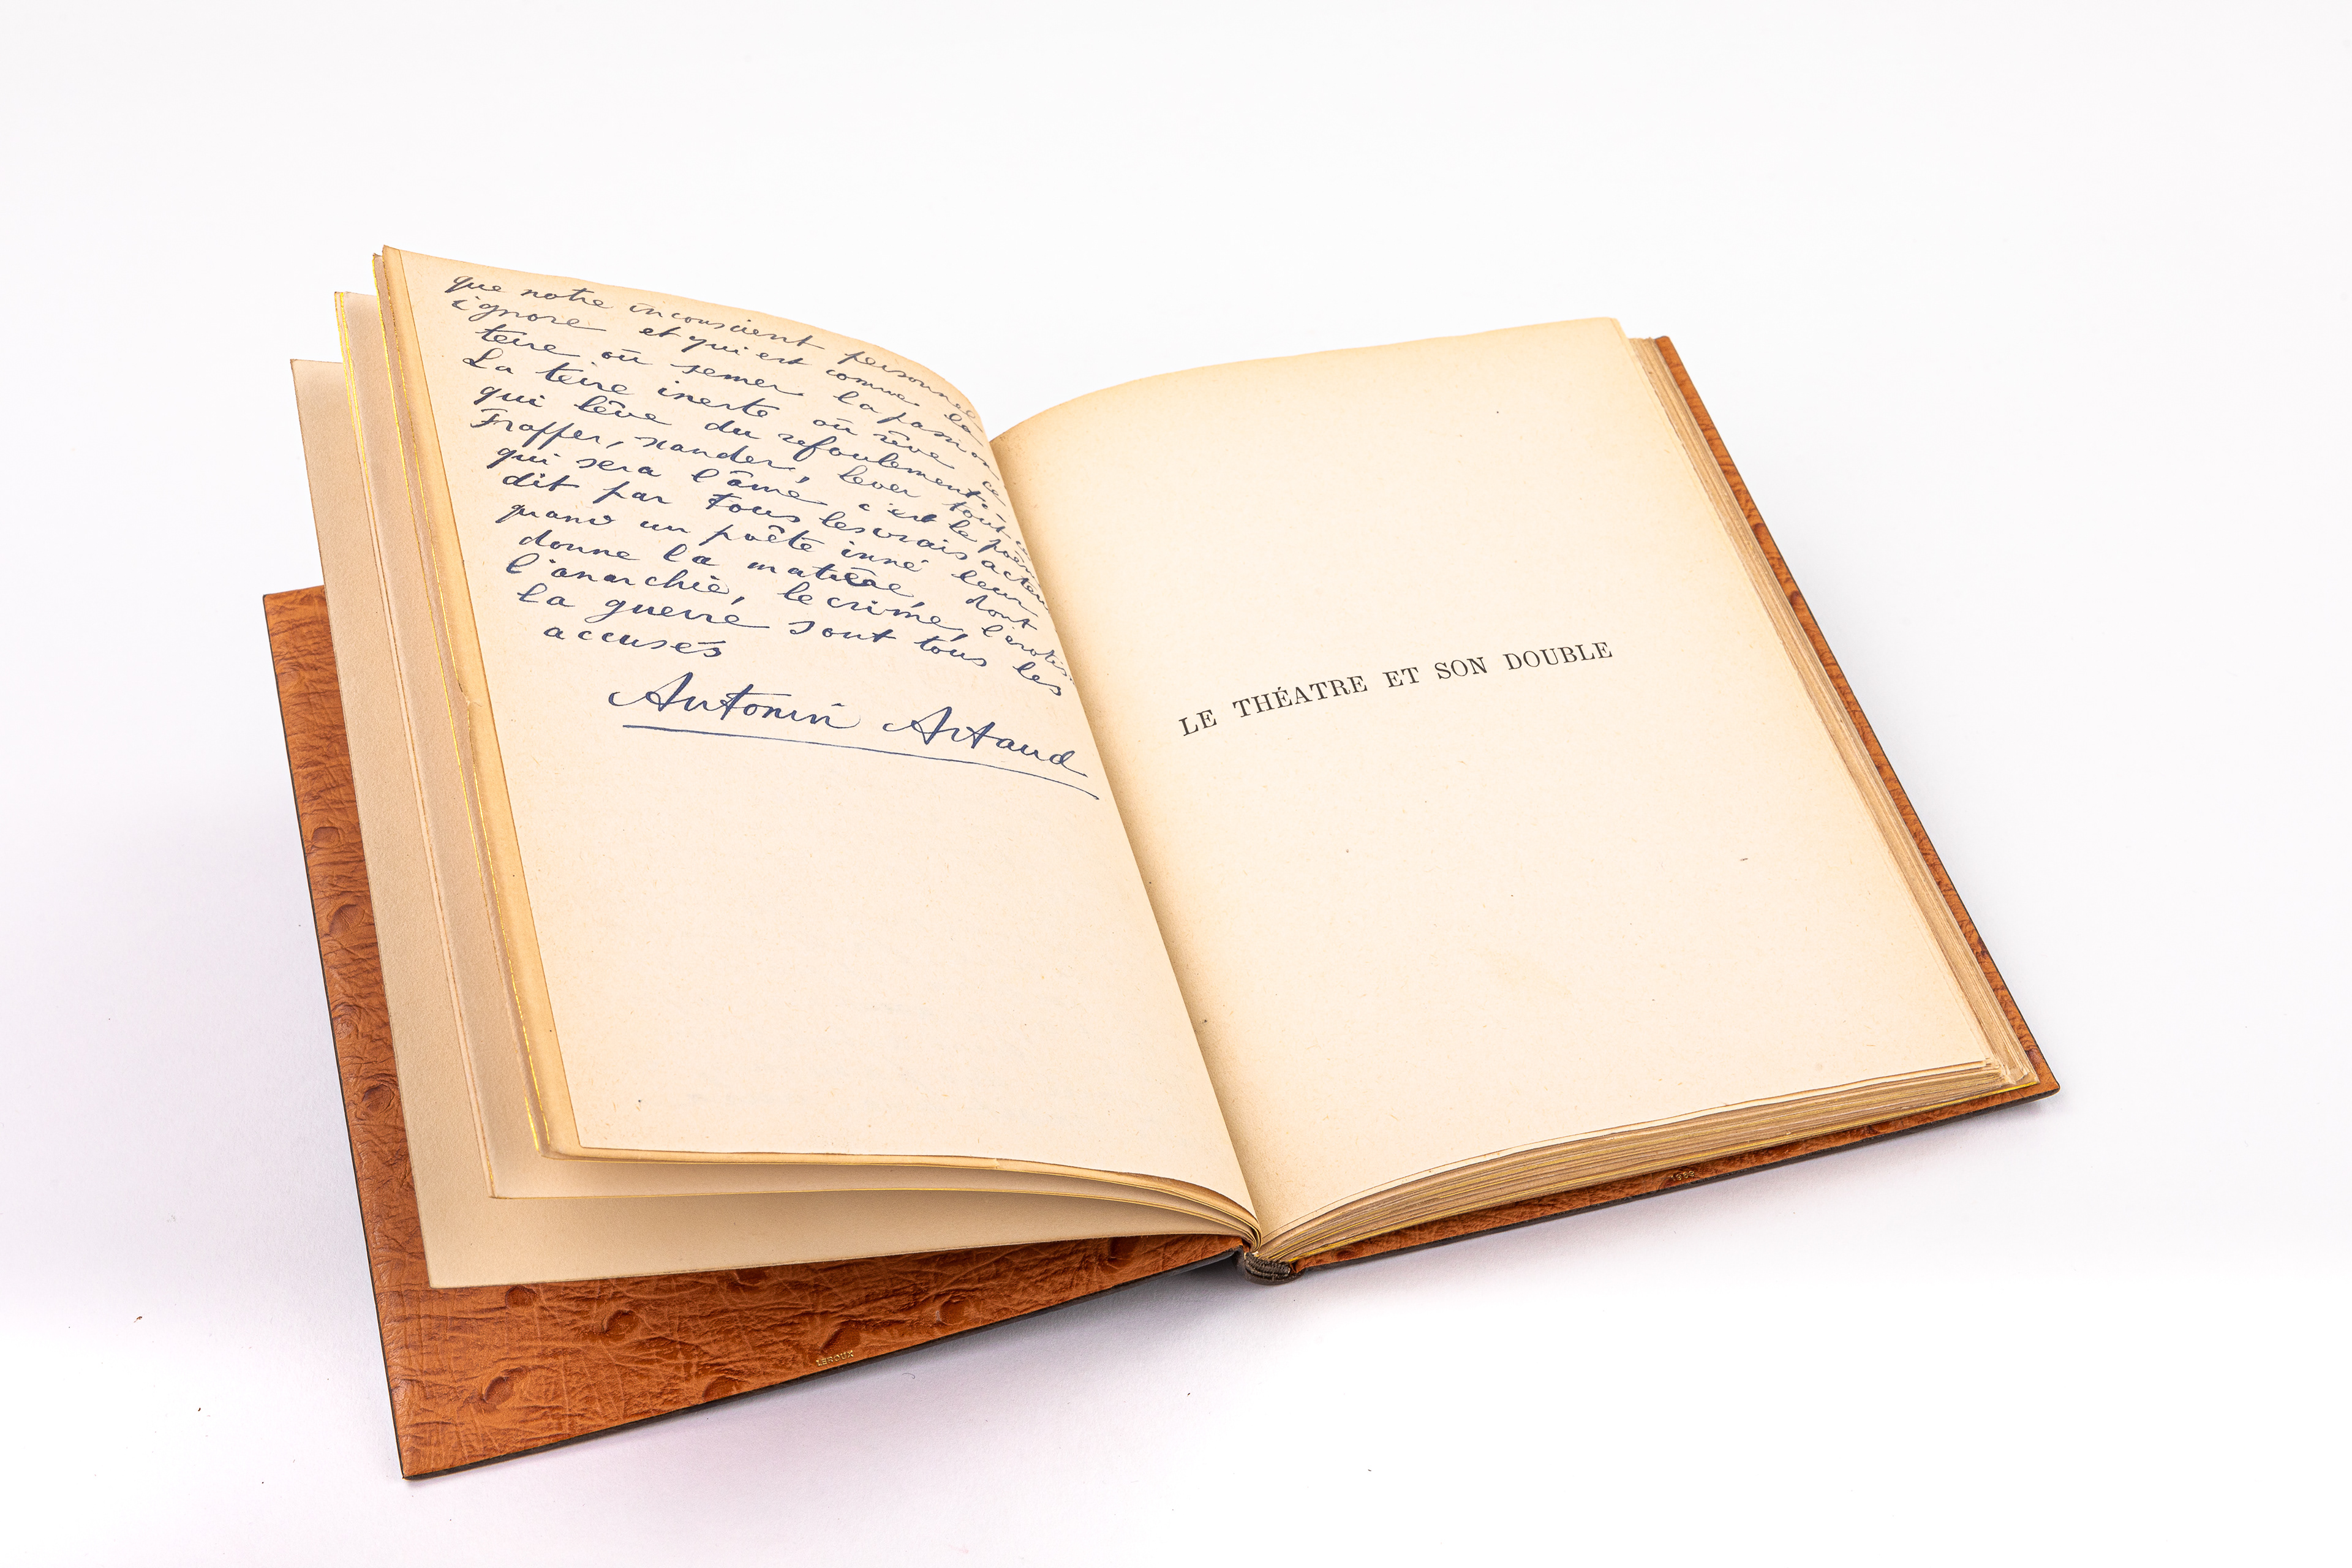 que notre inconscient personnel
ignore et qui est comme la
terre où semer la passion
La terre inerte où rêve ce
qui lève du refoulement
Frapper, scander, lever tout ce
qui sera l'âme c'est le poème
dit par tous les vrais acteurs
quand un poète inné leur
donne la matière, dont
l'anarchie, le crime, l'érotis.
la guerre sont tous les
accusés
Antonin Artaud
LE THÉATRE ET SON DOUBLE
LEROUX